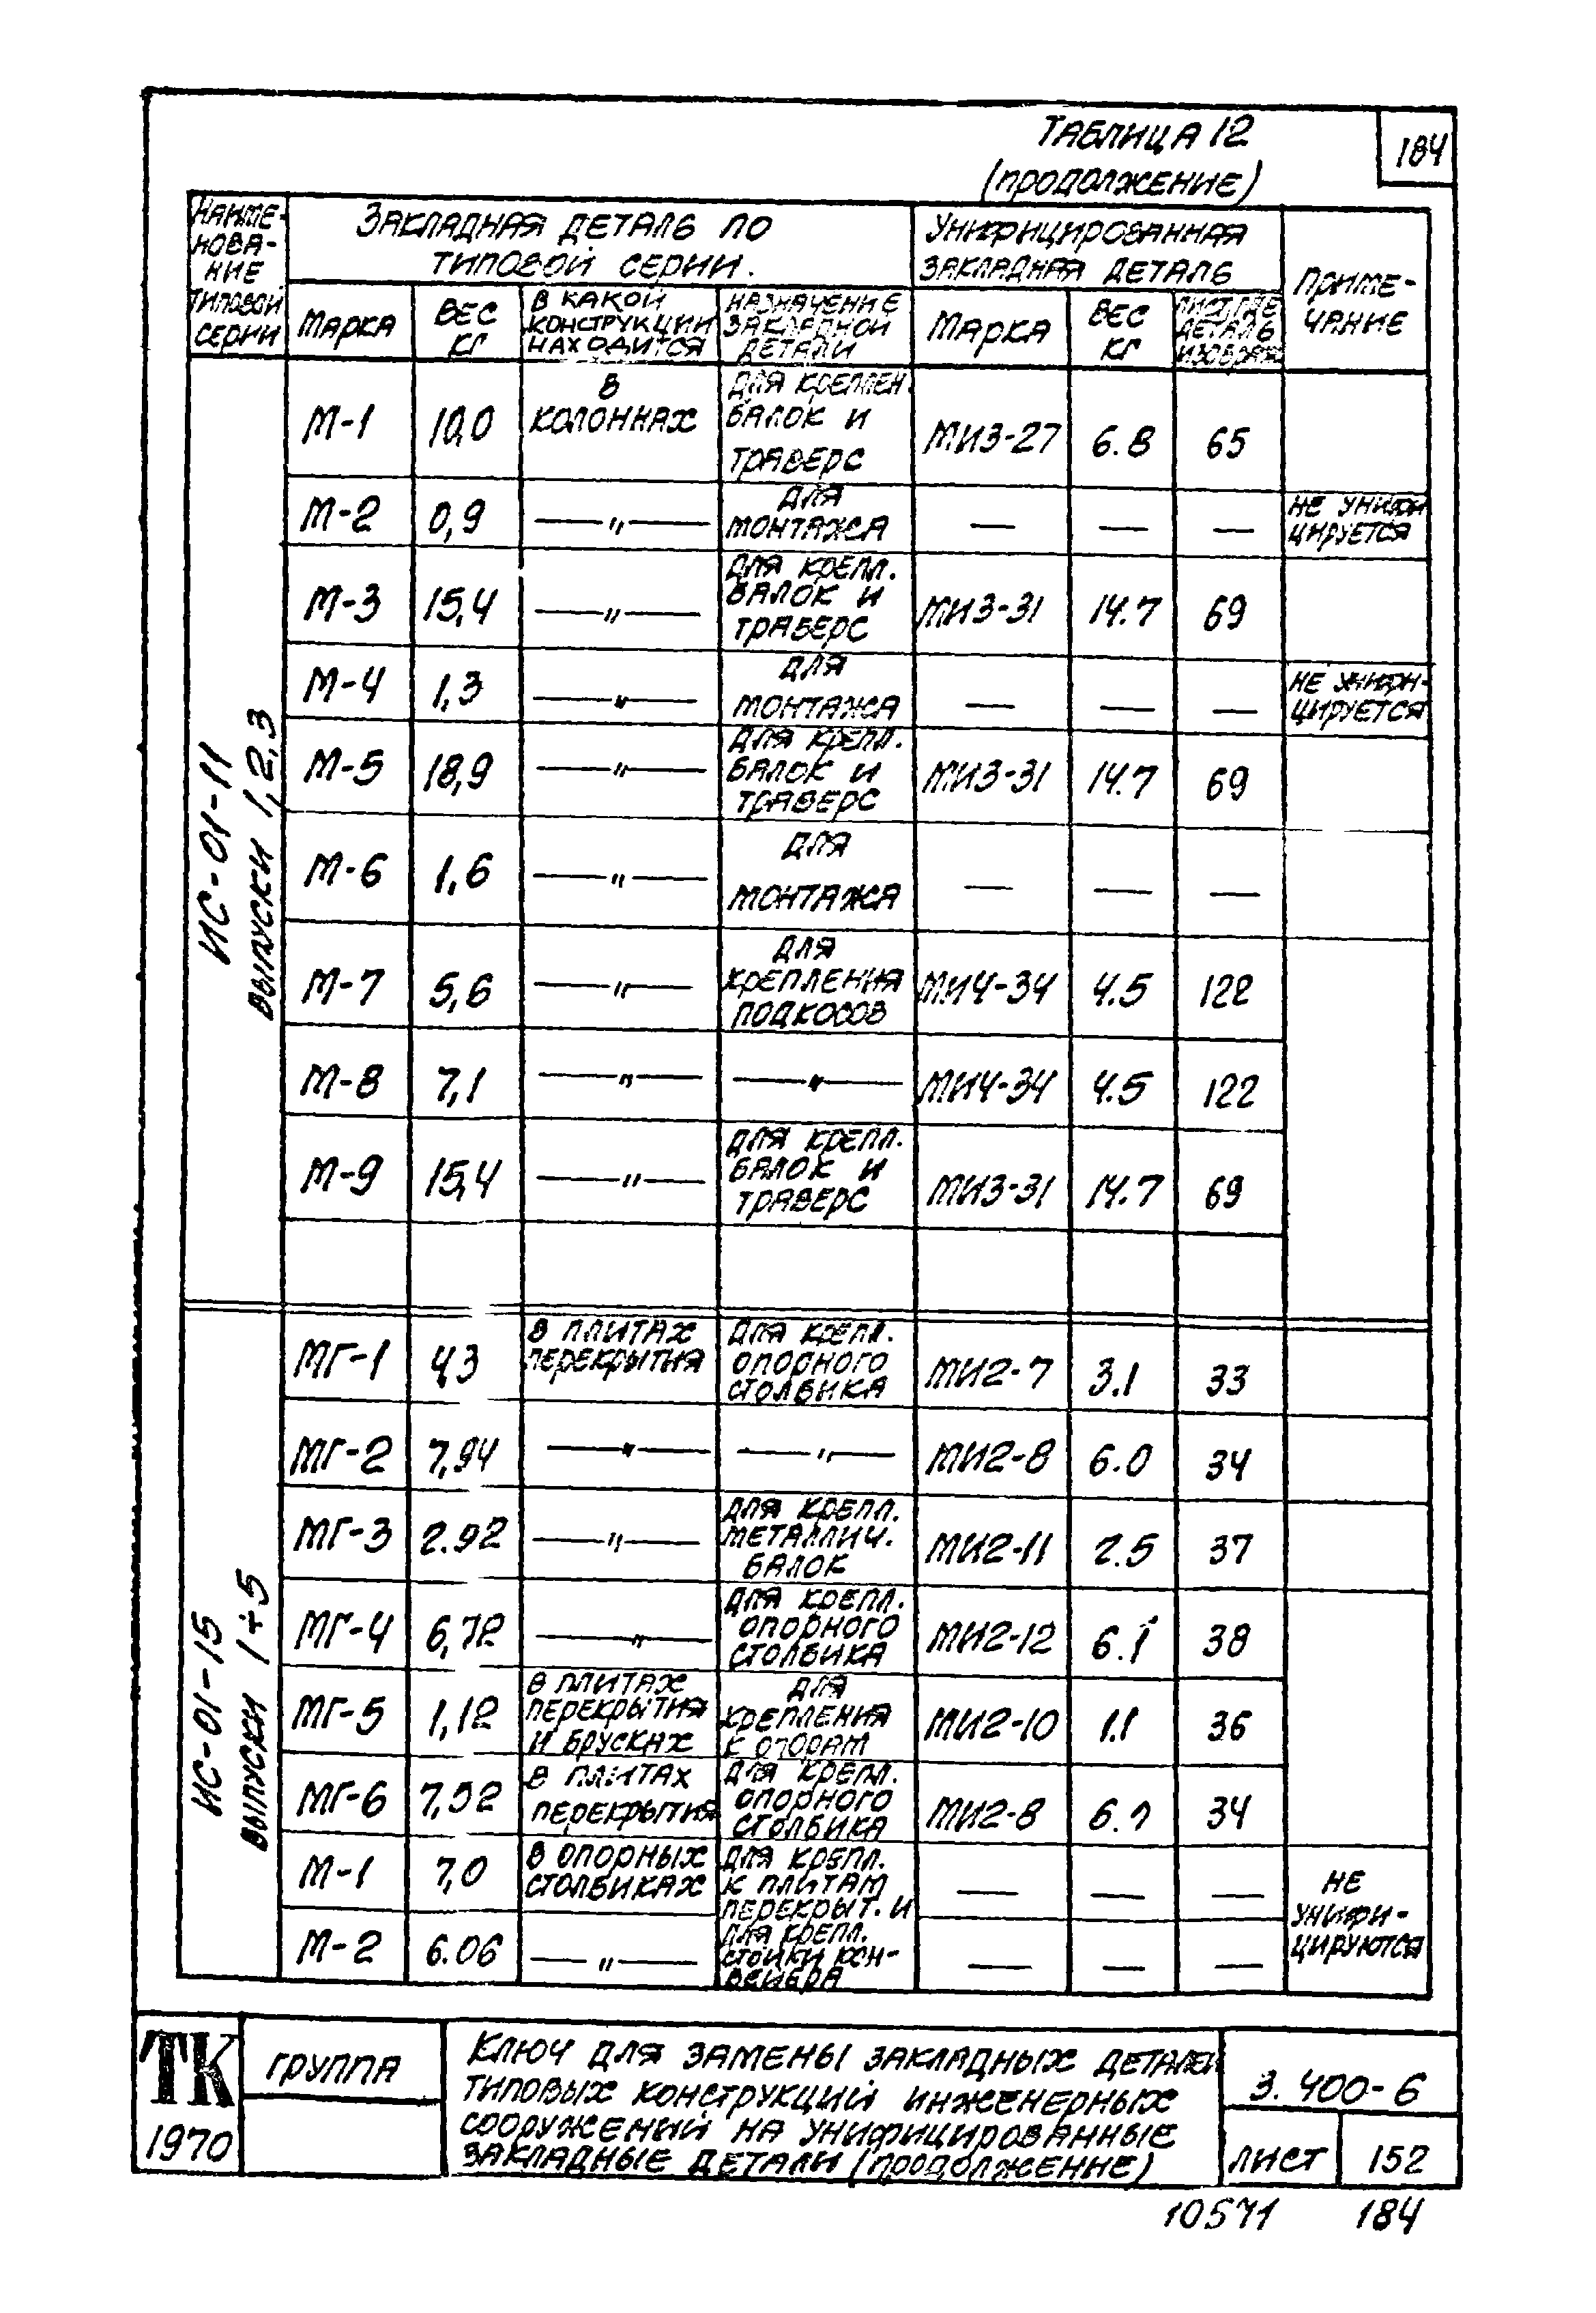 ТАБЛИЦА 12
(ПРОДОЛЖЕНИЕ)
184
НАИМЕ-
НОВА-
НИЕ
ТИПОВОЙ
СЕРИИ
ЗАКЛАДНАЯ ДЕТАЛЬ ПО
ТИПОВОЙ СЕРИИ.
УНИФИЦИРОВАННАЯ
ЗАКЛАДНАЯ ДЕТАЛЬ
ПРИМЕ-
ЧАНИЕ
МАРКА
ВЕС
КГ
В КАКОЙ
КОНСТРУКЦИИ
НАХОДИТСЯ
НАЗНАЧЕНИЕ
ЗАКЛАДНОЙ
ДЕТАЛИ
МАРКА
ВЕС
КГ
ЛИСТ ГДЕ
ДЕТАЛЬ
ИЗОБРАЖ
ИС-01-11
ВЫПУСКИ 1,2,3
М-1 10,0 В КОЛОННАХ ДЛЯ КРЕПЛЕН. БАЛОК И ТРАВЕРС МИ3-27 6.8 65
М-2 0,9 —〃— ДЛЯ МОНТАЖА — — — НЕ УНИФИ ЦИРУЕТСЯ
М-3 15,4 —〃— ДЛЯ КРЕПЛ. БАЛОК И ТРАВЕРС МИ3-31 14.7 69
М-4 1,3 —〃— ДЛЯ МОНТАЖА — — — НЕ УНИФИ- ЦИРУЕТСЯ
М-5 18,9 —〃— ДЛЯ КРЕПЛ. БАЛОК И ТРАВЕРС МИ3-31 14.7 69
М-6 1,6 —〃— ДЛЯ МОНТАЖА — — —
М-7 5,6 —〃— ДЛЯ КРЕПЛЕНИЯ ПОДКОСОВ МИ4-34 4.5 122
М-8 7,1 —〃— —〃— МИ4-34 4.5 122
М-9 15,4 —〃— ДЛЯ КРЕПЛ. БАЛОК И ТРАВЕРС МИ3-31 14.7 69
ИС-01-15
ВЫПУСКИ 1÷5
МГ-1 4,3 В ПЛИТАХ ПЕРЕКРЫТИЯ ДЛЯ КРЕПЛ. ОПОРНОГО СТОЛБИКА МИ2-7 3.1 33
МГ-2 7,94 —〃— —〃— МИ2-8 6.0 34
МГ-3 2.92 —〃— ДЛЯ КРЕПЛ. МЕТАЛЛИЧ. БАЛОК МИ2-11 2.5 37
МГ-4 6,72 —〃— ДЛЯ КРЕПЛ. ОПОРНОГО СТОЛБИКА МИ2-12 6.1 38
МГ-5 1,12 В ПЛИТАХ ПЕРЕКРЫТИЯ И БРУСКАХ ДЛЯ КРЕПЛЕНИЯ К ОПОРАМ МИ2-10 1.1 36
МГ-6 В ПЛИТАХ ПЕРЕКРЫТИЯ ДЛЯ КРЕПЛ. ОПОРНОГО СТОЛБИКА МИ2-8 34
М-1 7,0 В ОПОРНЫХ СТОЛБИКАХ ДЛЯ КРЕПЛ. К ПЛИТАМ ПЕРЕКРЫТ. И — — — НЕ УНИФИ- ЦИРУЮТСЯ
М-2 6.06 —〃— ДЛЯ КРЕПЛ. СТОЙКИ КОН- ВЕЙЕРА — — —
ТК
1970
ГРУППА
КЛЮЧ ДЛЯ ЗАМЕНЫ ЗАКЛАДНЫХ ДЕТАЛЕЙ
ТИПОВЫХ КОНСТРУКЦИЙ ИНЖЕНЕРНЫХ
СООРУЖЕНИЙ НА УНИФИЦИРОВАННЫЕ
ЗАКЛАДНЫЕ ДЕТАЛИ (ПРОДОЛЖЕНИЕ)
3.400-6
ЛИСТ 152
10571 184